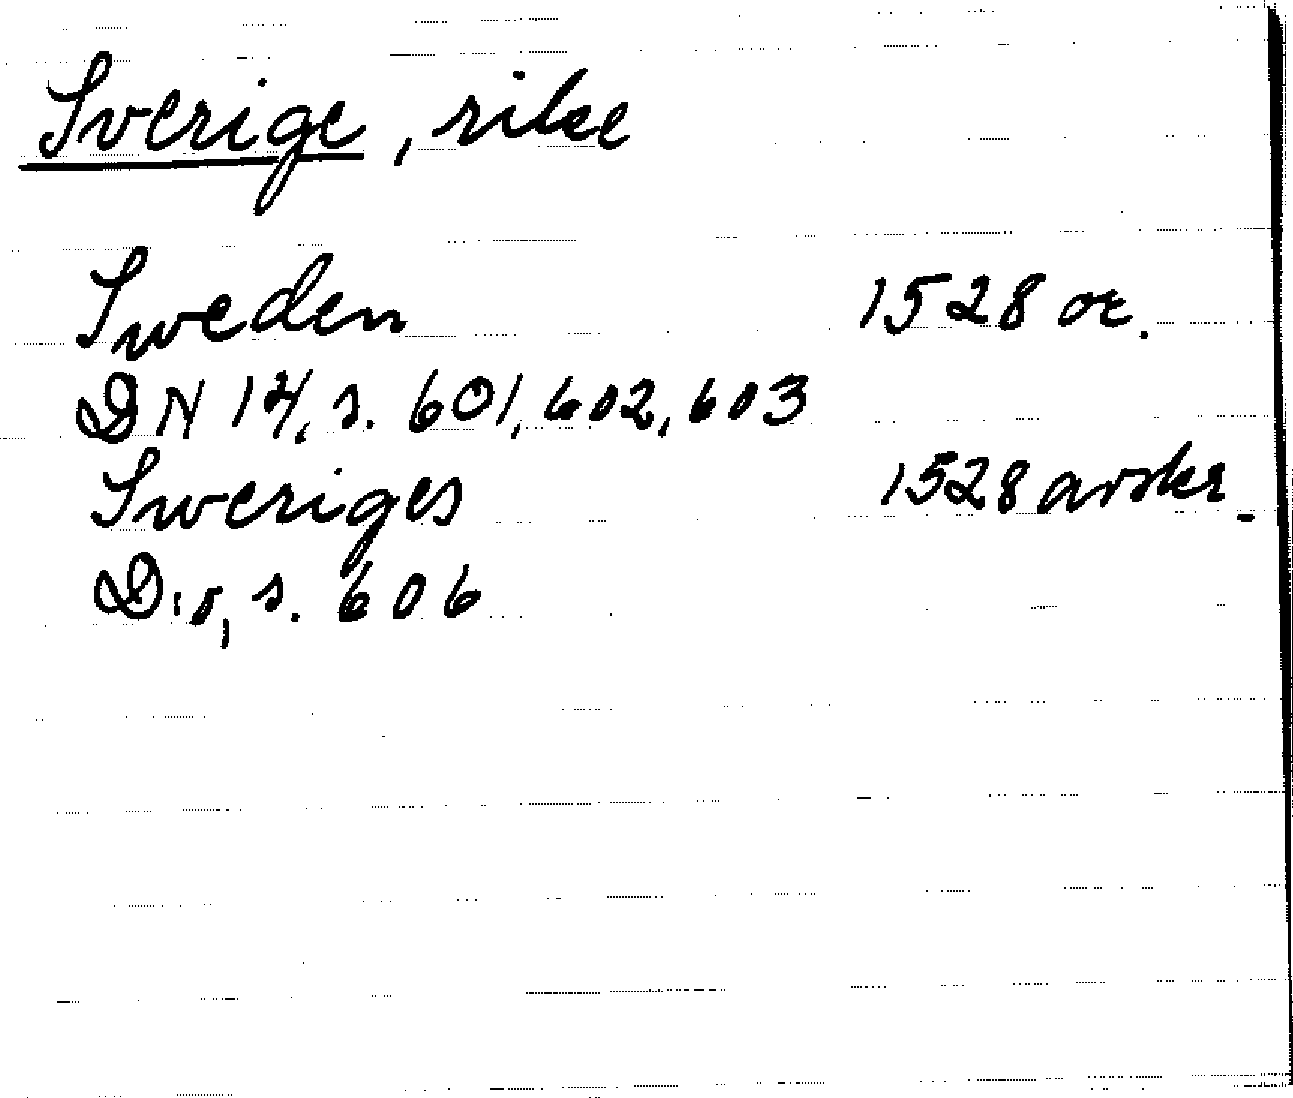 Sverige, rike
Sweden 1528 or.
DN 14, s. 601, 602, 603
Sweriges 1528 avskr.
D:o, s. 606